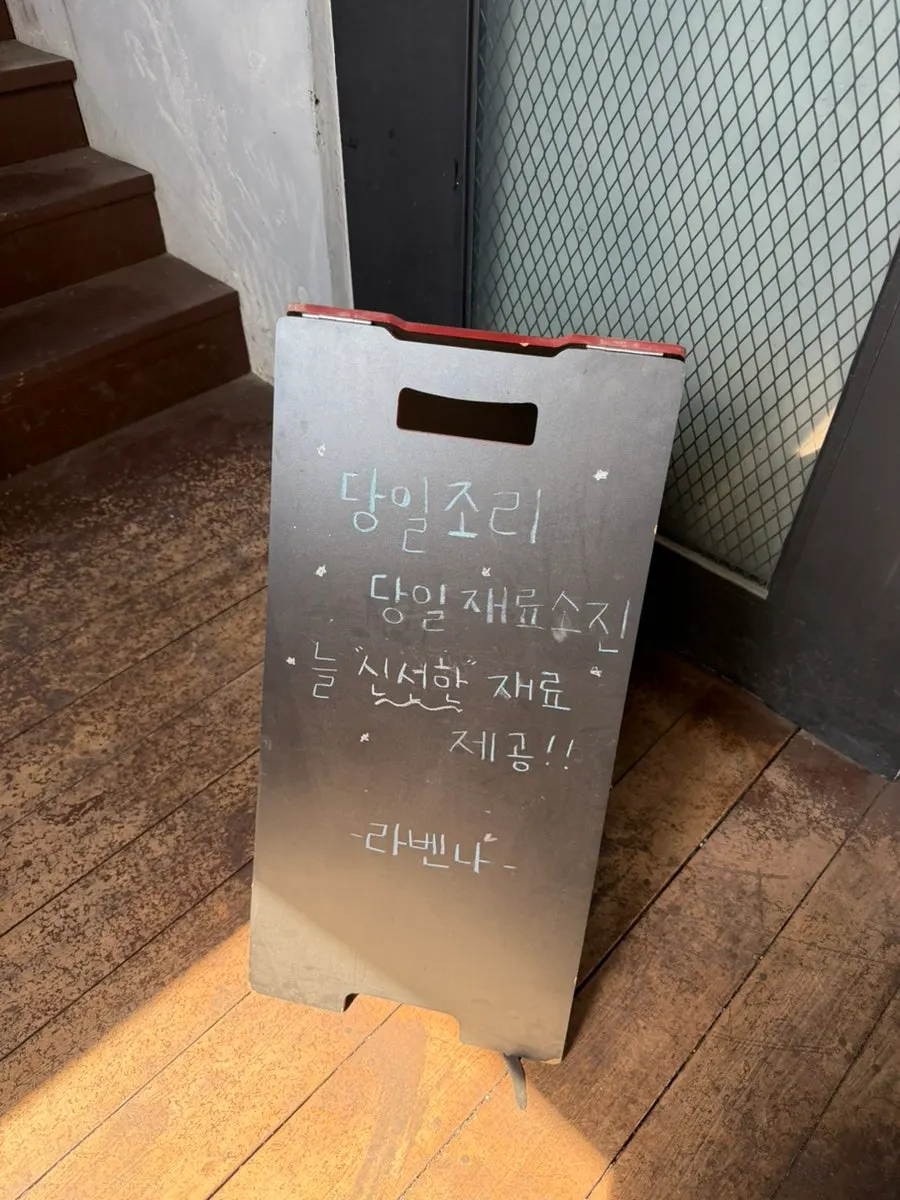 당일조리
당일 재료소진
늘 "신선한" 재료
제공!!
-라벤나-